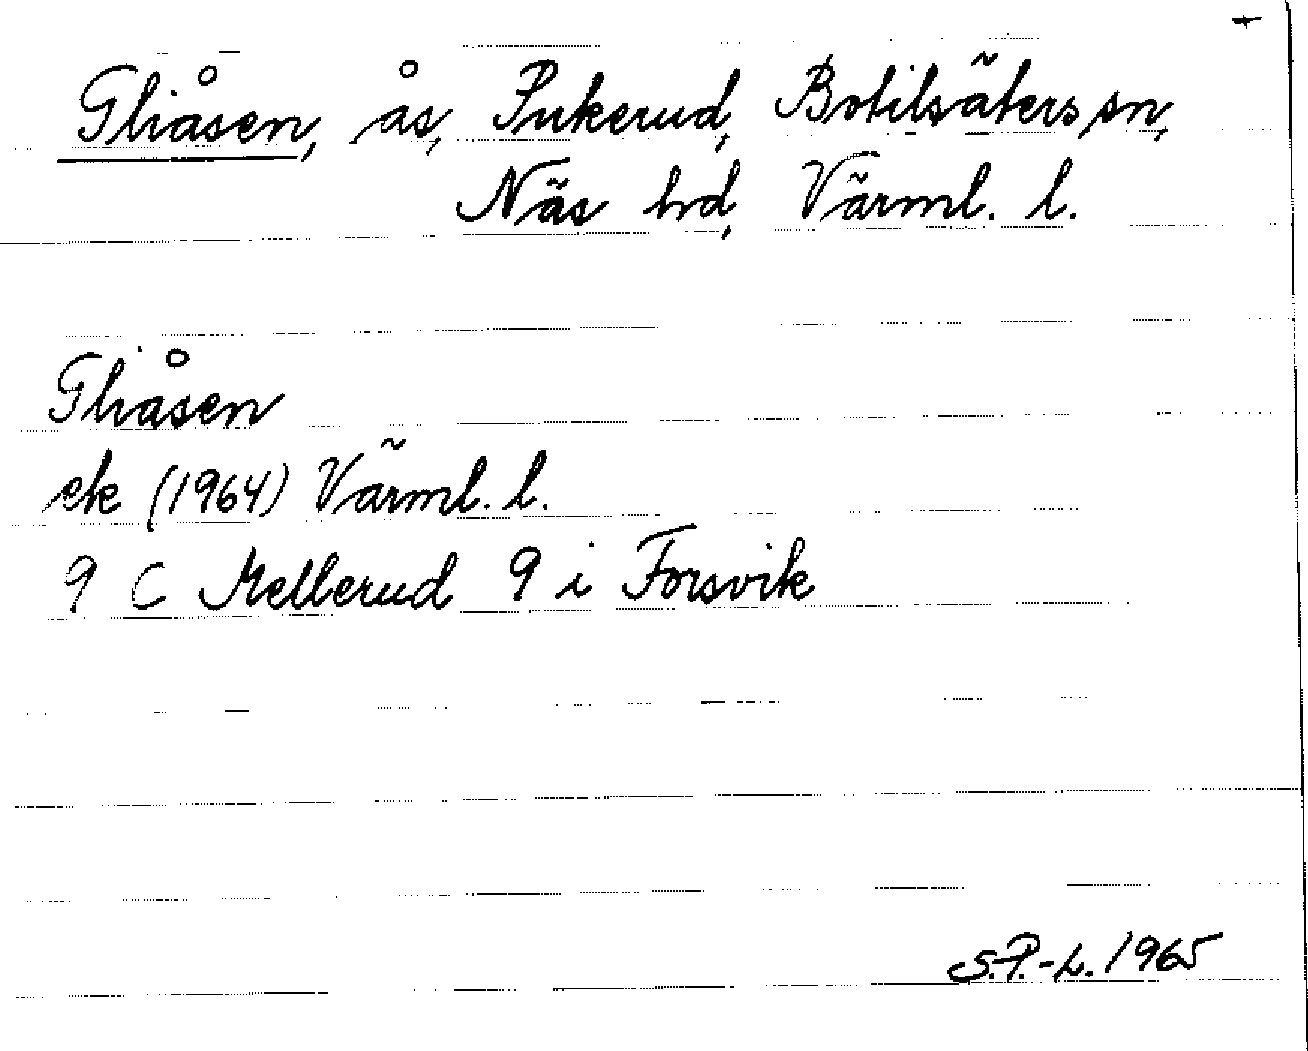 Gliåsen, ås, Pukerud, Botilsäters sn,
Näs hd, Värml. l.
Gliåsen
ek (1964) Värml. l.
9 C Mellerud 9 i Forsvik
S.P.-L. 1965